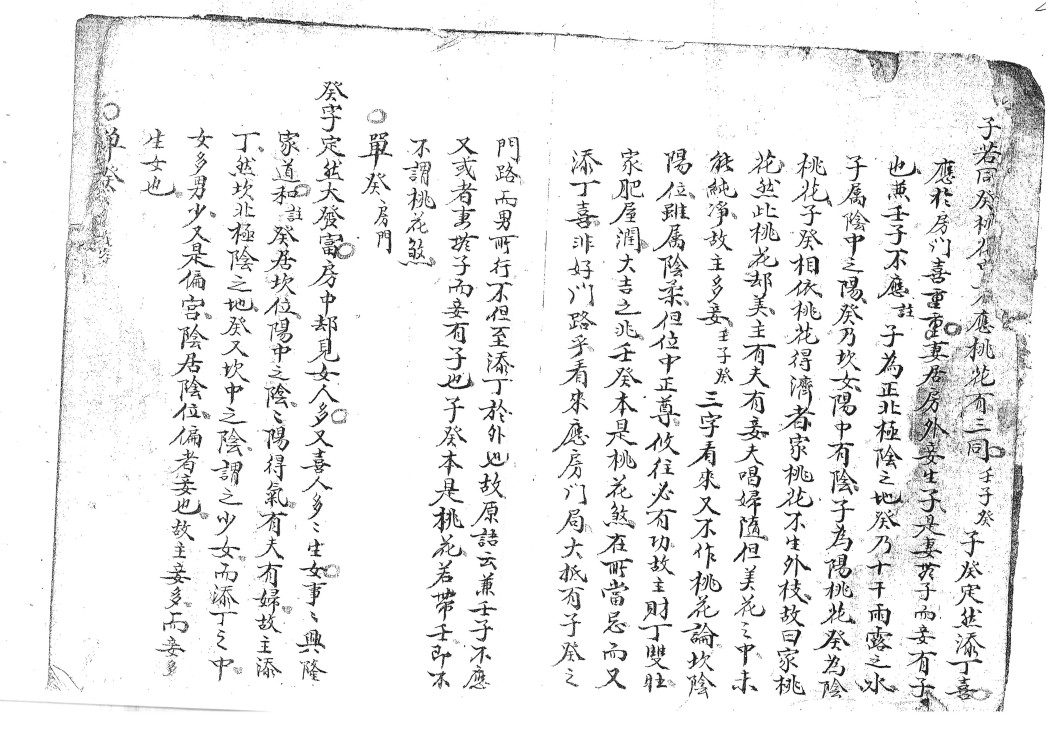 子若同癸桃花 不應桃花有三同壬子癸 子癸定然添丁喜
應於房门喜重重妻居房外妾生子是妻無子而妾有子
也兼壬子不應註 子為正北極陰之地癸乃十干雨露之水
子属陰中之陽癸乃坎女陽中有陰子為陽桃花癸為陰
桃花子癸相依桃花得濟者家桃花不生外枝故曰家桃
花然此桃花却美主有夫有妾夫唱婦隨但美花之中未
能純淨故主多妾壬子癸 三字看來又不作桃花論坎陰
陽位雖属陰柔但位中正尊攸往必有功故主財丁雙旺
家肥屋潤大吉之兆壬癸本是桃花煞在所當忌而又
添丁喜非好门路乎看來應房门局大抵有子癸之
門路而男所行不但至添丁於外也故原語云兼壬子不應
又或者妻無子而妾有子也子癸本是桃花若帶壬即不
不謂桃花煞
單癸房門
癸字定然大發富房中却見女人多又喜人多〻生女事〻興隆
家道和註 癸居坎位陽中之陰〻陽得氣有夫有婦故主添
丁然坎北極陰之地癸又坎中之陰謂之少女而添丁之中
女多男少又是偏宫陰居陰位偏者妾也故主妾多而妾多
生女也
单癸